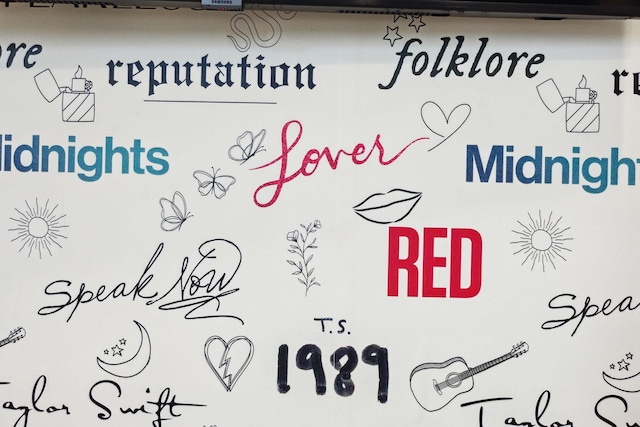 SAMSUNG
ore
reputation
folklore
re
idnights
Lover
Midnight
RED
Speak Now
Spea
T.S.
1989
Taylor Swift
Taylor Sw